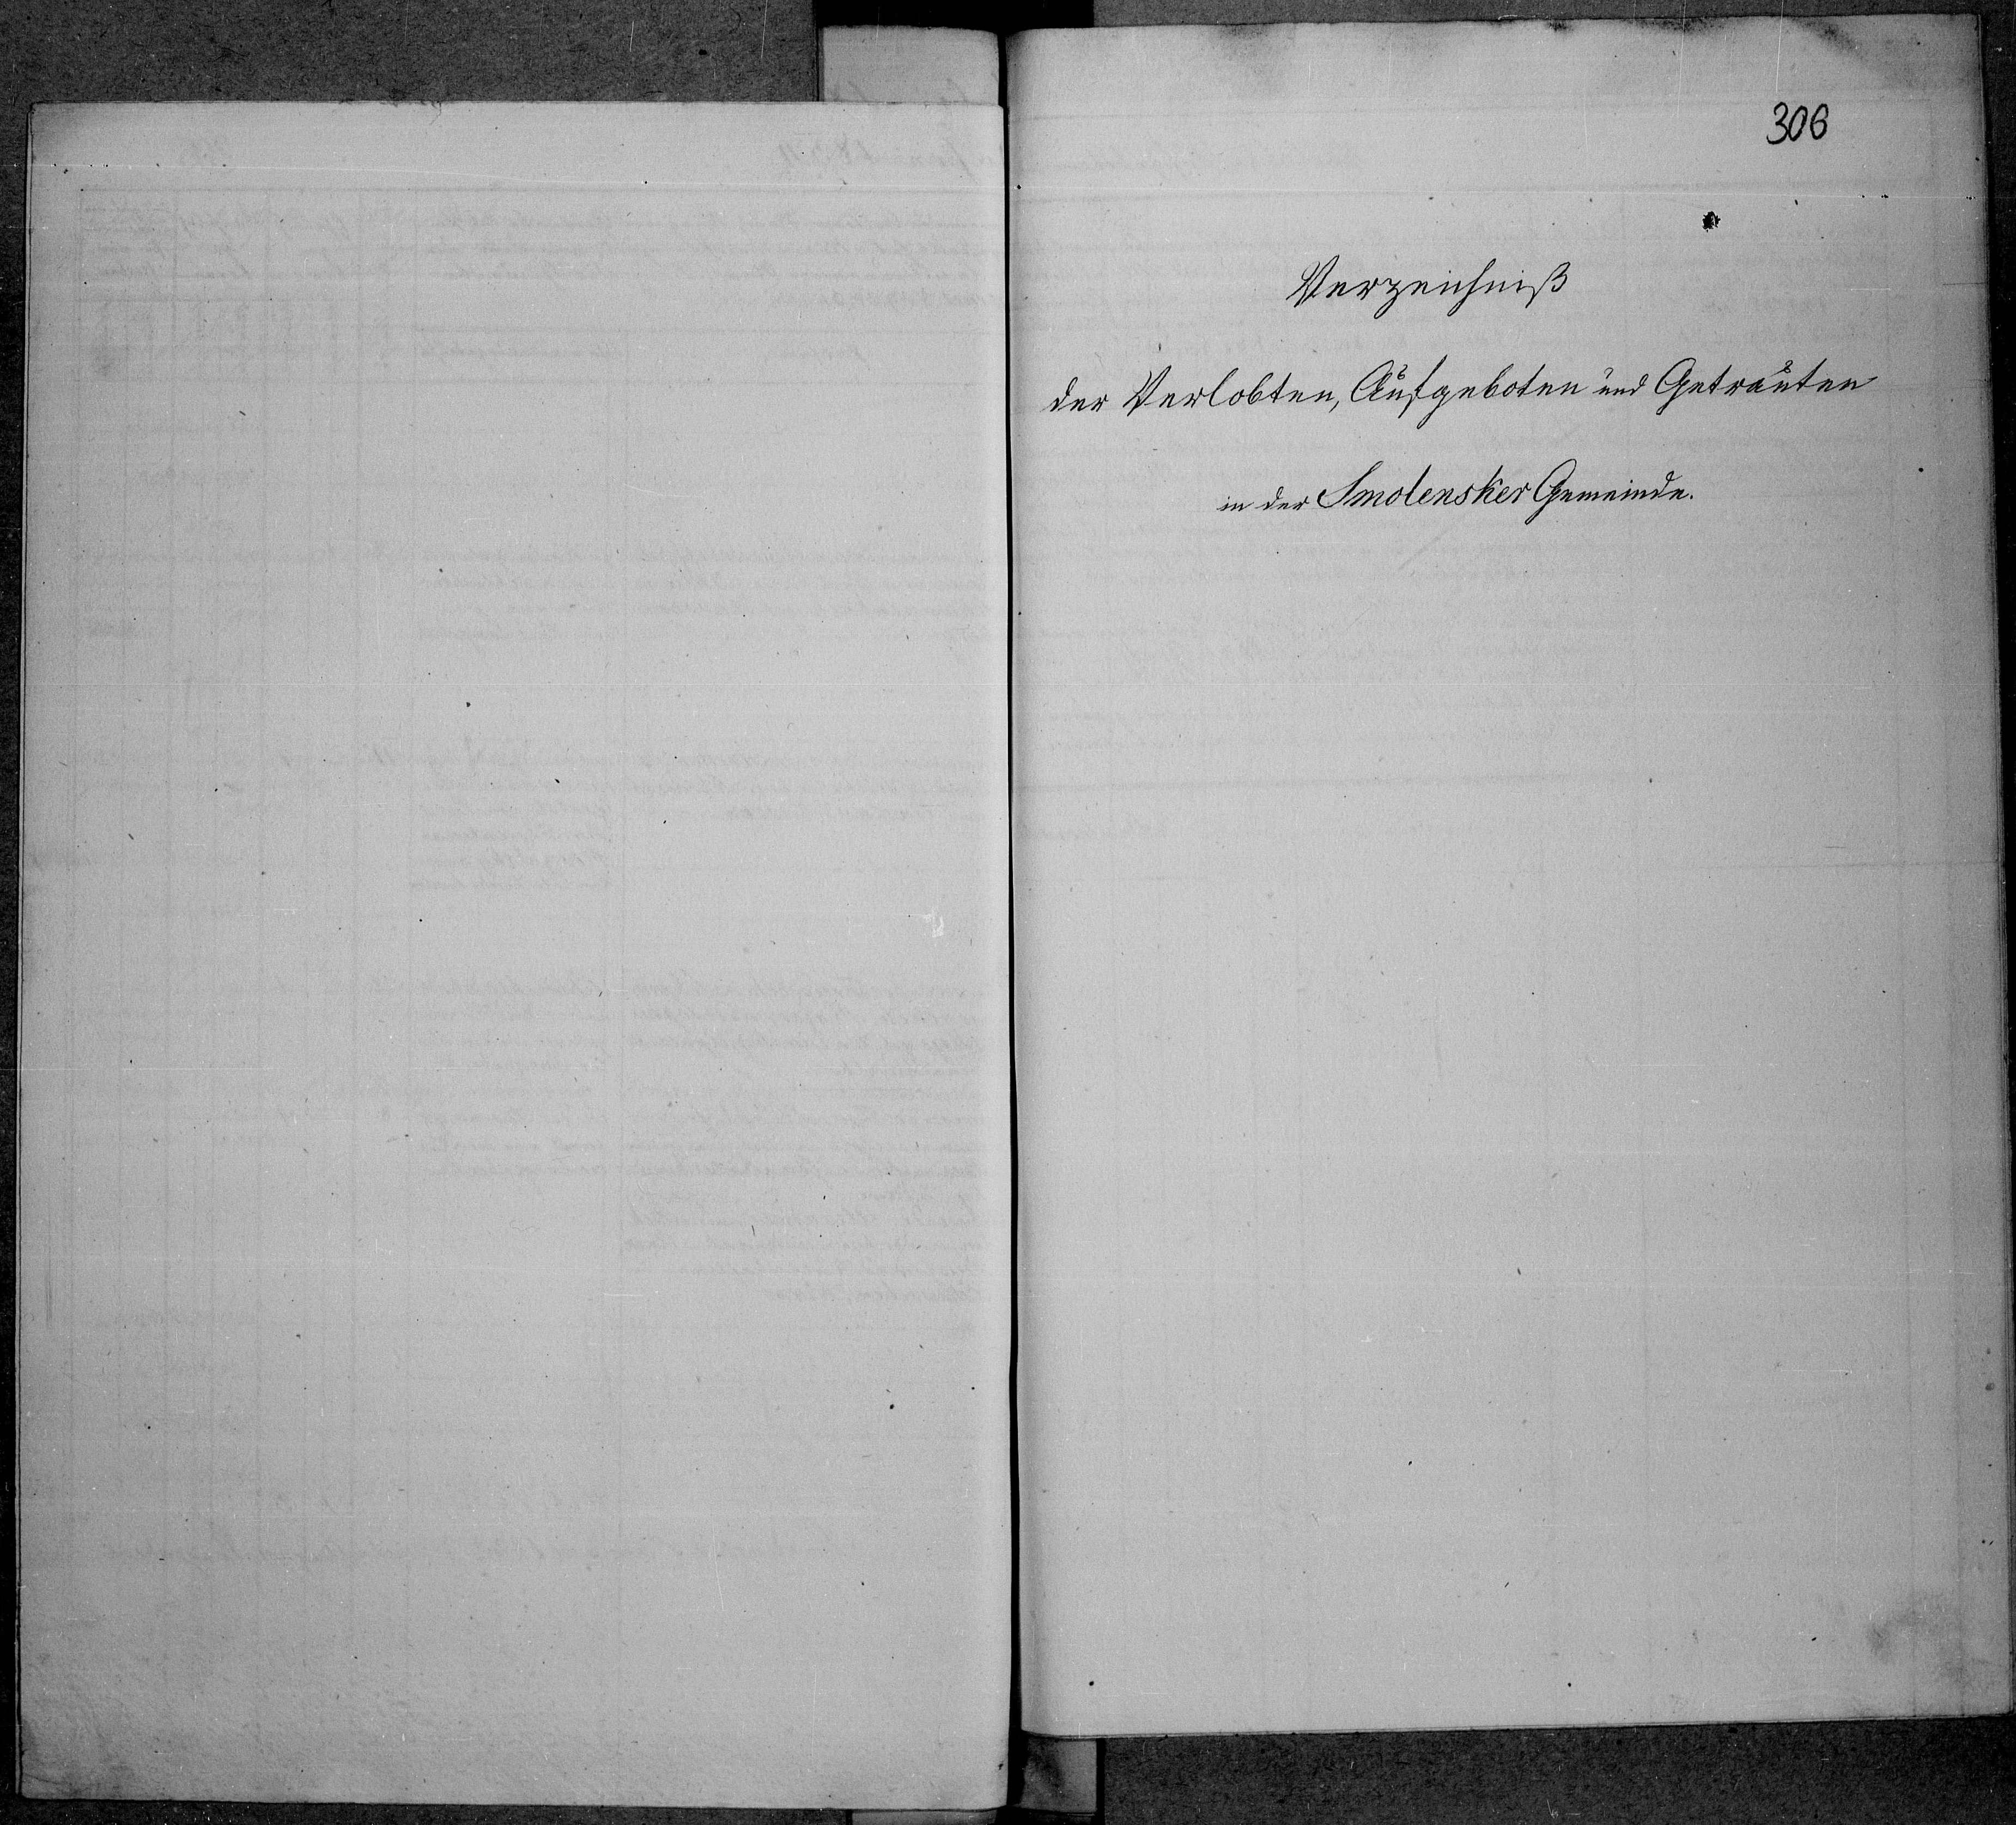 306
Verzeichniß
der Verlobten, Aufgeboten und Getrauten
in der Smolensker Gemeinde.